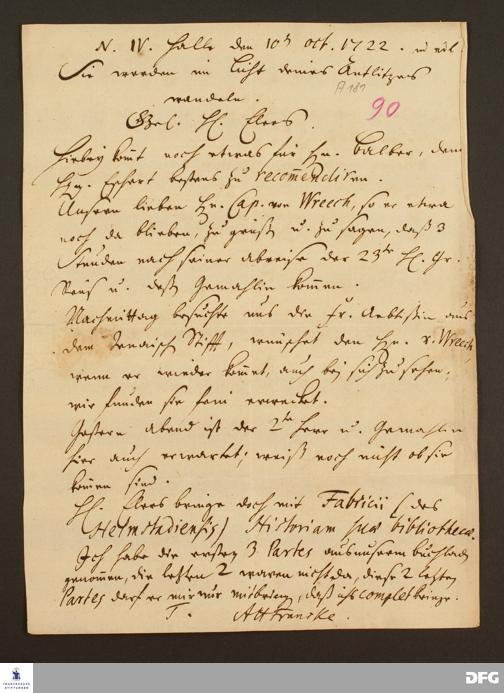 N. IV. Halle den 10ⁿ oct. 1722.
Sie werden im Licht deines Antlitzes
wandeln.
A 181
90
Gel. H. Elers.
Hiebey komt noch etwas für Hn. Balber, dem
Hn. Erhert bestens zu recomendiren.
Unsern lieben Hn. Cap. von Wreech, so er etwa
noch da blieben, zu grüßen u. zu sagen, daß 3
Stunden nach seiner abreise der 23te H. Gr.
Reuß u. deß Gemahlin kommen.
Nachmittag besuchte uns die Fr. Aebtißin aus
dem Stifft, wünschet den Hn. v. Wreech,
wenn er wieder kommet, auch bey sich zu sehen;
wir funden sie fein erwecket.
Gestern abend ist der 2te Herr u. Gemahlin
hier auch erwartet; weiß noch nicht ob sie
kommen sind.
H. Elers bringe doch mit Fabricii (des
Helmstadiensis) Historiam suae bibliothecae.
Ich habe die ersten 3 Partes aus unserm buchladen
genommen, die letzten 2 waren nicht da, diese 2 letzten
Partes darf er mir nur mitbringen, daß ichs complet kriege.
T. AHFrancke.
FRANCKESCHE
STIFTUNGEN
DFG